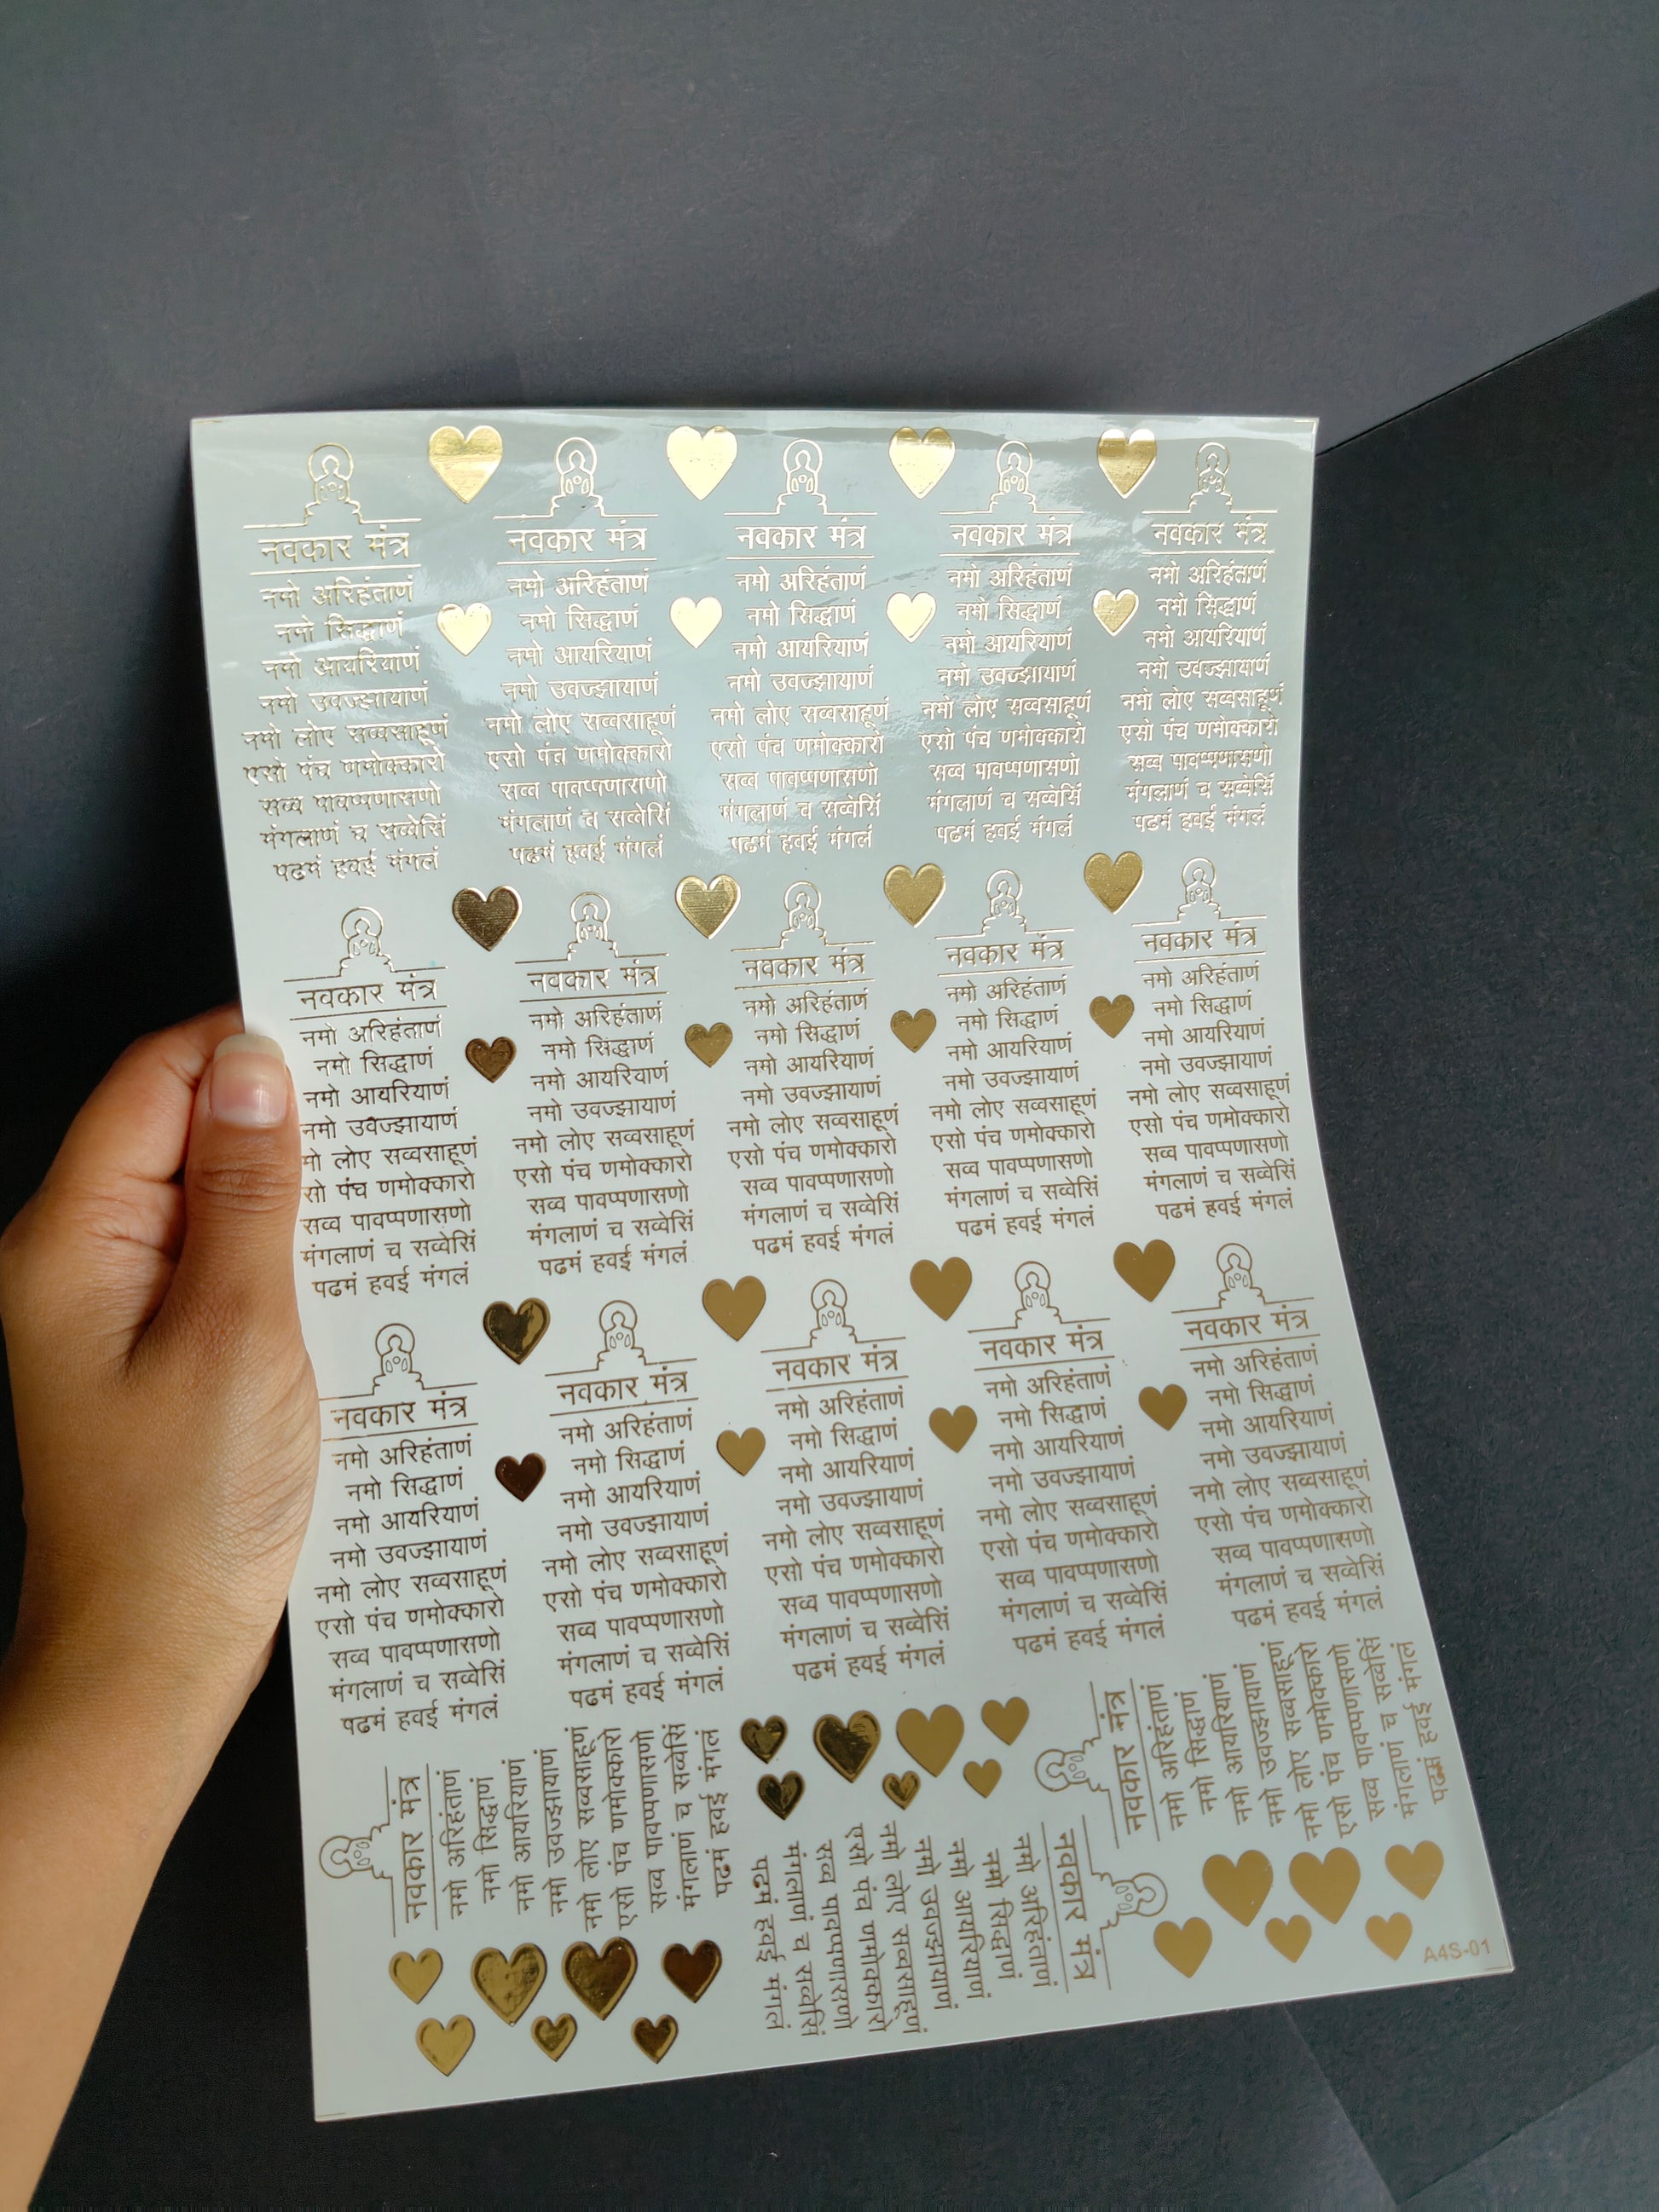 नवकार मंत्र
नमो अरिहंताणं
नमो सिद्धाणं
नमो आयरियाणं
नमो उवज्झायाणं
नमो लोए सव्वसाहूणं
एसो पंच णमोक्कारो
सव्व पावप्पणासणो
मंगलाणं च सव्वेसिं
पढमं हवई मंगलं
नवकार मंत्र
नमो अरिहंताणं
नमो सिद्धाणं
नमो आयरियाणं
नमो उवज्झायाणं
नमो लोए सव्वसाहूणं
एसो पंच णमोक्कारो
सव्व पावप्पणासणो
मंगलाणं च सव्वेसिं
पढमं हवई मंगलं
नवकार मंत्र
नमो अरिहंताणं
नमो सिद्धाणं
नमो आयरियाणं
नमो उवज्झायाणं
नमो लोए सव्वसाहूणं
एसो पंच णमोक्कारो
सव्व पावप्पणासणो
मंगलाणं च सव्वेसिं
पढमं हवई मंगलं
नवकार मंत्र
नमो अरिहंताणं
नमो सिद्धाणं
नमो आयरियाणं
नमो उवज्झायाणं
नमो लोए सव्वसाहूणं
एसो पंच णमोक्कारो
सव्व पावप्पणासणो
मंगलाणं च सव्वेसिं
पढमं हवई मंगलं
नवकार मंत्र
नमो अरिहंताणं
नमो सिद्धाणं
नमो आयरियाणं
नमो उवज्झायाणं
नमो लोए सव्वसाहूणं
एसो पंच णमोक्कारो
सव्व पावप्पणासणो
मंगलाणं च सव्वेसिं
पढमं हवई मंगलं
नवकार मंत्र
नमो अरिहंताणं
नमो सिद्धाणं
नमो आयरियाणं
नमो उवज्झायाणं
मो लोए सव्वसाहूणं
सो पंच णमोक्कारो
सव्व पावप्पणासणो
मंगलाणं च सव्वेसिं
पढमं हवई मंगलं
नवकार मंत्र
नमो अरिहंताणं
नमो सिद्धाणं
नमो आयरियाणं
नमो उवज्झायाणं
नमो लोए सव्वसाहूणं
एसो पंच णमोक्कारो
सव्व पावप्पणासणो
मंगलाणं च सव्वेसिं
पढमं हवई मंगलं
नवकार मंत्र
नमो अरिहंताणं
नमो सिद्धाणं
नमो आयरियाणं
नमो उवज्झायाणं
नमो लोए सव्वसाहूणं
एसो पंच णमोक्कारो
सव्व पावप्पणासणो
मंगलाणं च सव्वेसिं
पढमं हवई मंगलं
नवकार मंत्र
नमो अरिहंताणं
नमो सिद्धाणं
नमो आयरियाणं
नमो उवज्झायाणं
नमो लोए सव्वसाहूणं
एसो पंच णमोक्कारो
सव्व पावप्पणासणो
मंगलाणं च सव्वेसिं
पढमं हवई मंगलं
नवकार मंत्र
नमो अरिहंताणं
नमो सिद्धाणं
नमो आयरियाणं
नमो उवज्झायाणं
नमो लोए सव्वसाहूणं
एसो पंच णमोक्कारो
सव्व पावप्पणासणो
मंगलाणं च सव्वेसिं
पढमं हवई मंगलं
नवकार मंत्र
नमो अरिहंताणं
नमो सिद्धाणं
नमो आयरियाणं
नमो उवज्झायाणं
नमो लोए सव्वसाहूणं
एसो पंच णमोक्कारो
सव्व पावप्पणासणो
मंगलाणं च सव्वेसिं
पढमं हवई मंगलं
नवकार मंत्र
नमो अरिहंताणं
नमो सिद्धाणं
नमो आयरियाणं
नमो उवज्झायाणं
नमो लोए सव्वसाहूणं
एसो पंच णमोक्कारो
सव्व पावप्पणासणो
मंगलाणं च सव्वेसिं
पढमं हवई मंगलं
नवकार मंत्र
नमो अरिहंताणं
नमो सिद्धाणं
नमो आयरियाणं
नमो उवज्झायाणं
नमो लोए सव्वसाहूणं
एसो पंच णमोक्कारो
सव्व पावप्पणासणो
मंगलाणं च सव्वेसिं
पढमं हवई मंगलं
नवकार मंत्र
नमो अरिहंताणं
नमो सिद्धाणं
नमो आयरियाणं
नमो उवज्झायाणं
नमो लोए सव्वसाहूणं
एसो पंच णमोक्कारो
सव्व पावप्पणासणो
मंगलाणं च सव्वेसिं
पढमं हवई मंगलं
नवकार मंत्र
नमो अरिहंताणं
नमो सिद्धाणं
नमो आयरियाणं
नमो उवज्झायाणं
नमो लोए सव्वसाहूणं
एसो पंच णमोक्कारो
सव्व पावप्पणासणो
मंगलाणं च सव्वेसिं
पढमं हवई मंगलं
नवकार मंत्र
नमो अरिहंताणं
नमो सिद्धाणं
नमो आयरियाणं
नमो उवज्झायाणं
नमो लोए सव्वसाहूणं
एसो पंच णमोक्कारो
सव्व पावप्पणासणो
मंगलाणं च सव्वेसिं
पढमं हवई मंगलं
नवकार मंत्र
नमो अरिहंताणं
नमो सिद्धाणं
नमो आयरियाणं
नमो उवज्झायाणं
नमो लोए सव्वसाहूणं
एसो पंच णमोक्कारो
सव्व पावप्पणासणो
मंगलाणं च सव्वेसिं
पढमं हवई मंगलं
नवकार मंत्र
नमो अरिहंताणं
नमो सिद्धाणं
नमो आयरियाणं
नमो उवज्झायाणं
नमो लोए सव्वसाहूणं
एसो पंच णमोक्कारो
सव्व पावप्पणासणो
मंगलाणं च सव्वेसिं
पढमं हवई मंगलं
A4S-01